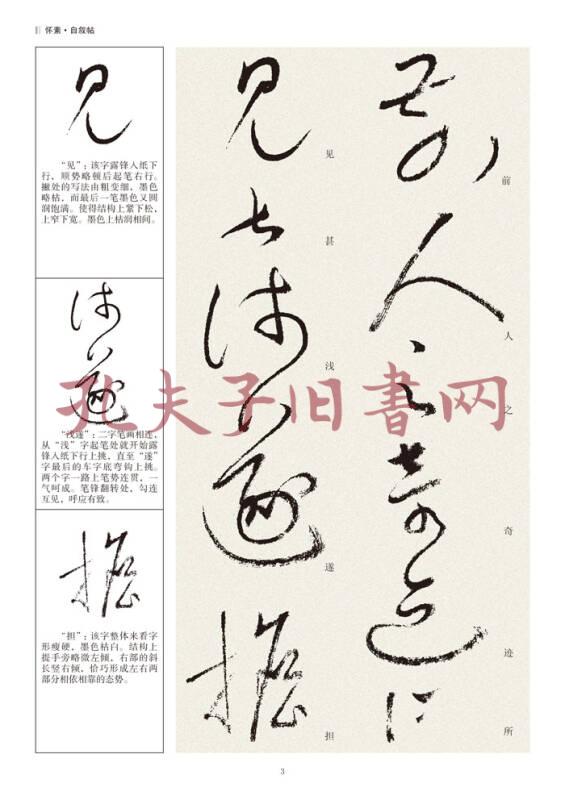 怀素·自叙帖
见
“见”：该字露锋入纸下
行，顺势略顿后起笔右行。
撇处的写法由粗变细，墨色
略枯，而最后一笔墨色又圆
润饱满。使得结构上紧下松，
上窄下宽。墨色上枯润相间。
浅遂
“浅遂”：二字笔画相连，
从“浅”字起笔处就开始露
锋入纸下行上挑，直至“遂”
字最后的车字底弯钩上挑。
两个字一路上笔势连贯，一
气呵成。笔锋翻转处，勾连
互见，呼应有致。
担
“担”：该字整体来看字
形瘦硬，墨色枯白。结构上
提手旁略微左倾，右部的斜
长竖右倾，恰巧形成左右两
部分相依相靠的态势。
前人之奇迹所
前人之奇迹所
见甚浅遂担
见甚浅遂担
孔夫子旧书网
3